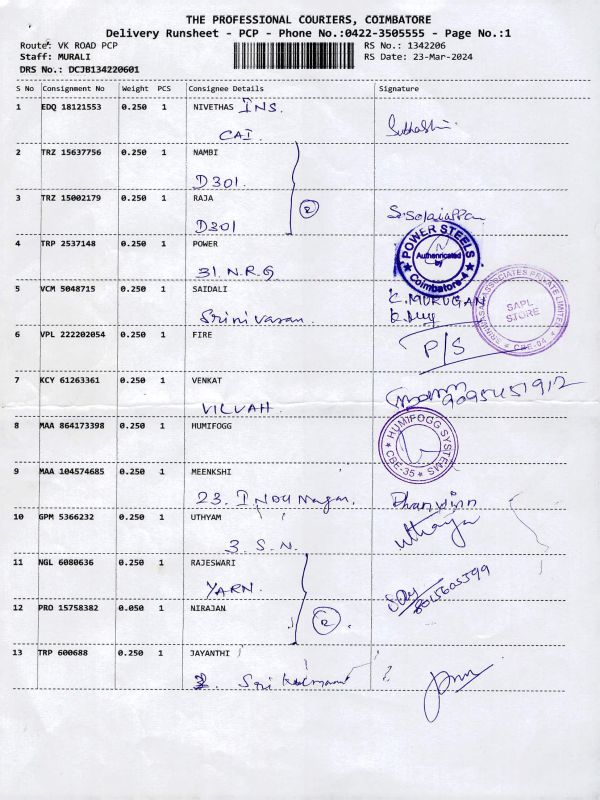 THE PROFESSIONAL COURIERS, COIMBATORE
Delivery Runsheet - PCP - Phone No.:0422-3505555 - Page No.:1
Route: VK ROAD PCP RS No.: 1342206
Staff: MURALI RS Date: 23-Mar-2024
DRS No.: DCJB134220601
S No Consignment No Weight PCS Consignee Details Signature
1 EDQ 18121553 0.250 1 NIVETHAS INS.
CAI.
2 TRZ 15637756 0.250 1 NAMBI
D301.
3 TRZ 15002179 0.250 1 RAJA
D301
2
4 TRP 2537148 0.250 1 POWER
31. N.R.G
POWER STEELS
Authenricated by
Coimbatore
5 VCM 5048715 0.250 1 SAIDALI
Srinivasan
C. MURUGAN
SRINIVASA ASSOCIATES PRIVATE LIMITED
SAPL
STORE
CBE-04
6 VPL 222202054 0.250 1 FIRE
P/S
7 KCY 61263361 0.250 1 VENKAT
VILVAH.
8 MAA 864173398 0.250 1 HUMIFOGG
HUMIFOGG SYSTEMS
CBE-35
9 MAA 104574685 0.250 1 MEENKSHI
23. Nagar.
10 GPM 5366232 0.250 1 UTHYAM
3. S.N.
Uthaya
11 NGL 6080636 0.250 1 RAJESWARI
YARN.
8015605599
12 PRO 15758382 0.050 1 NIRAJAN
2
13 TRP 600688 0.250 1 JAYANTHI
2. Sri